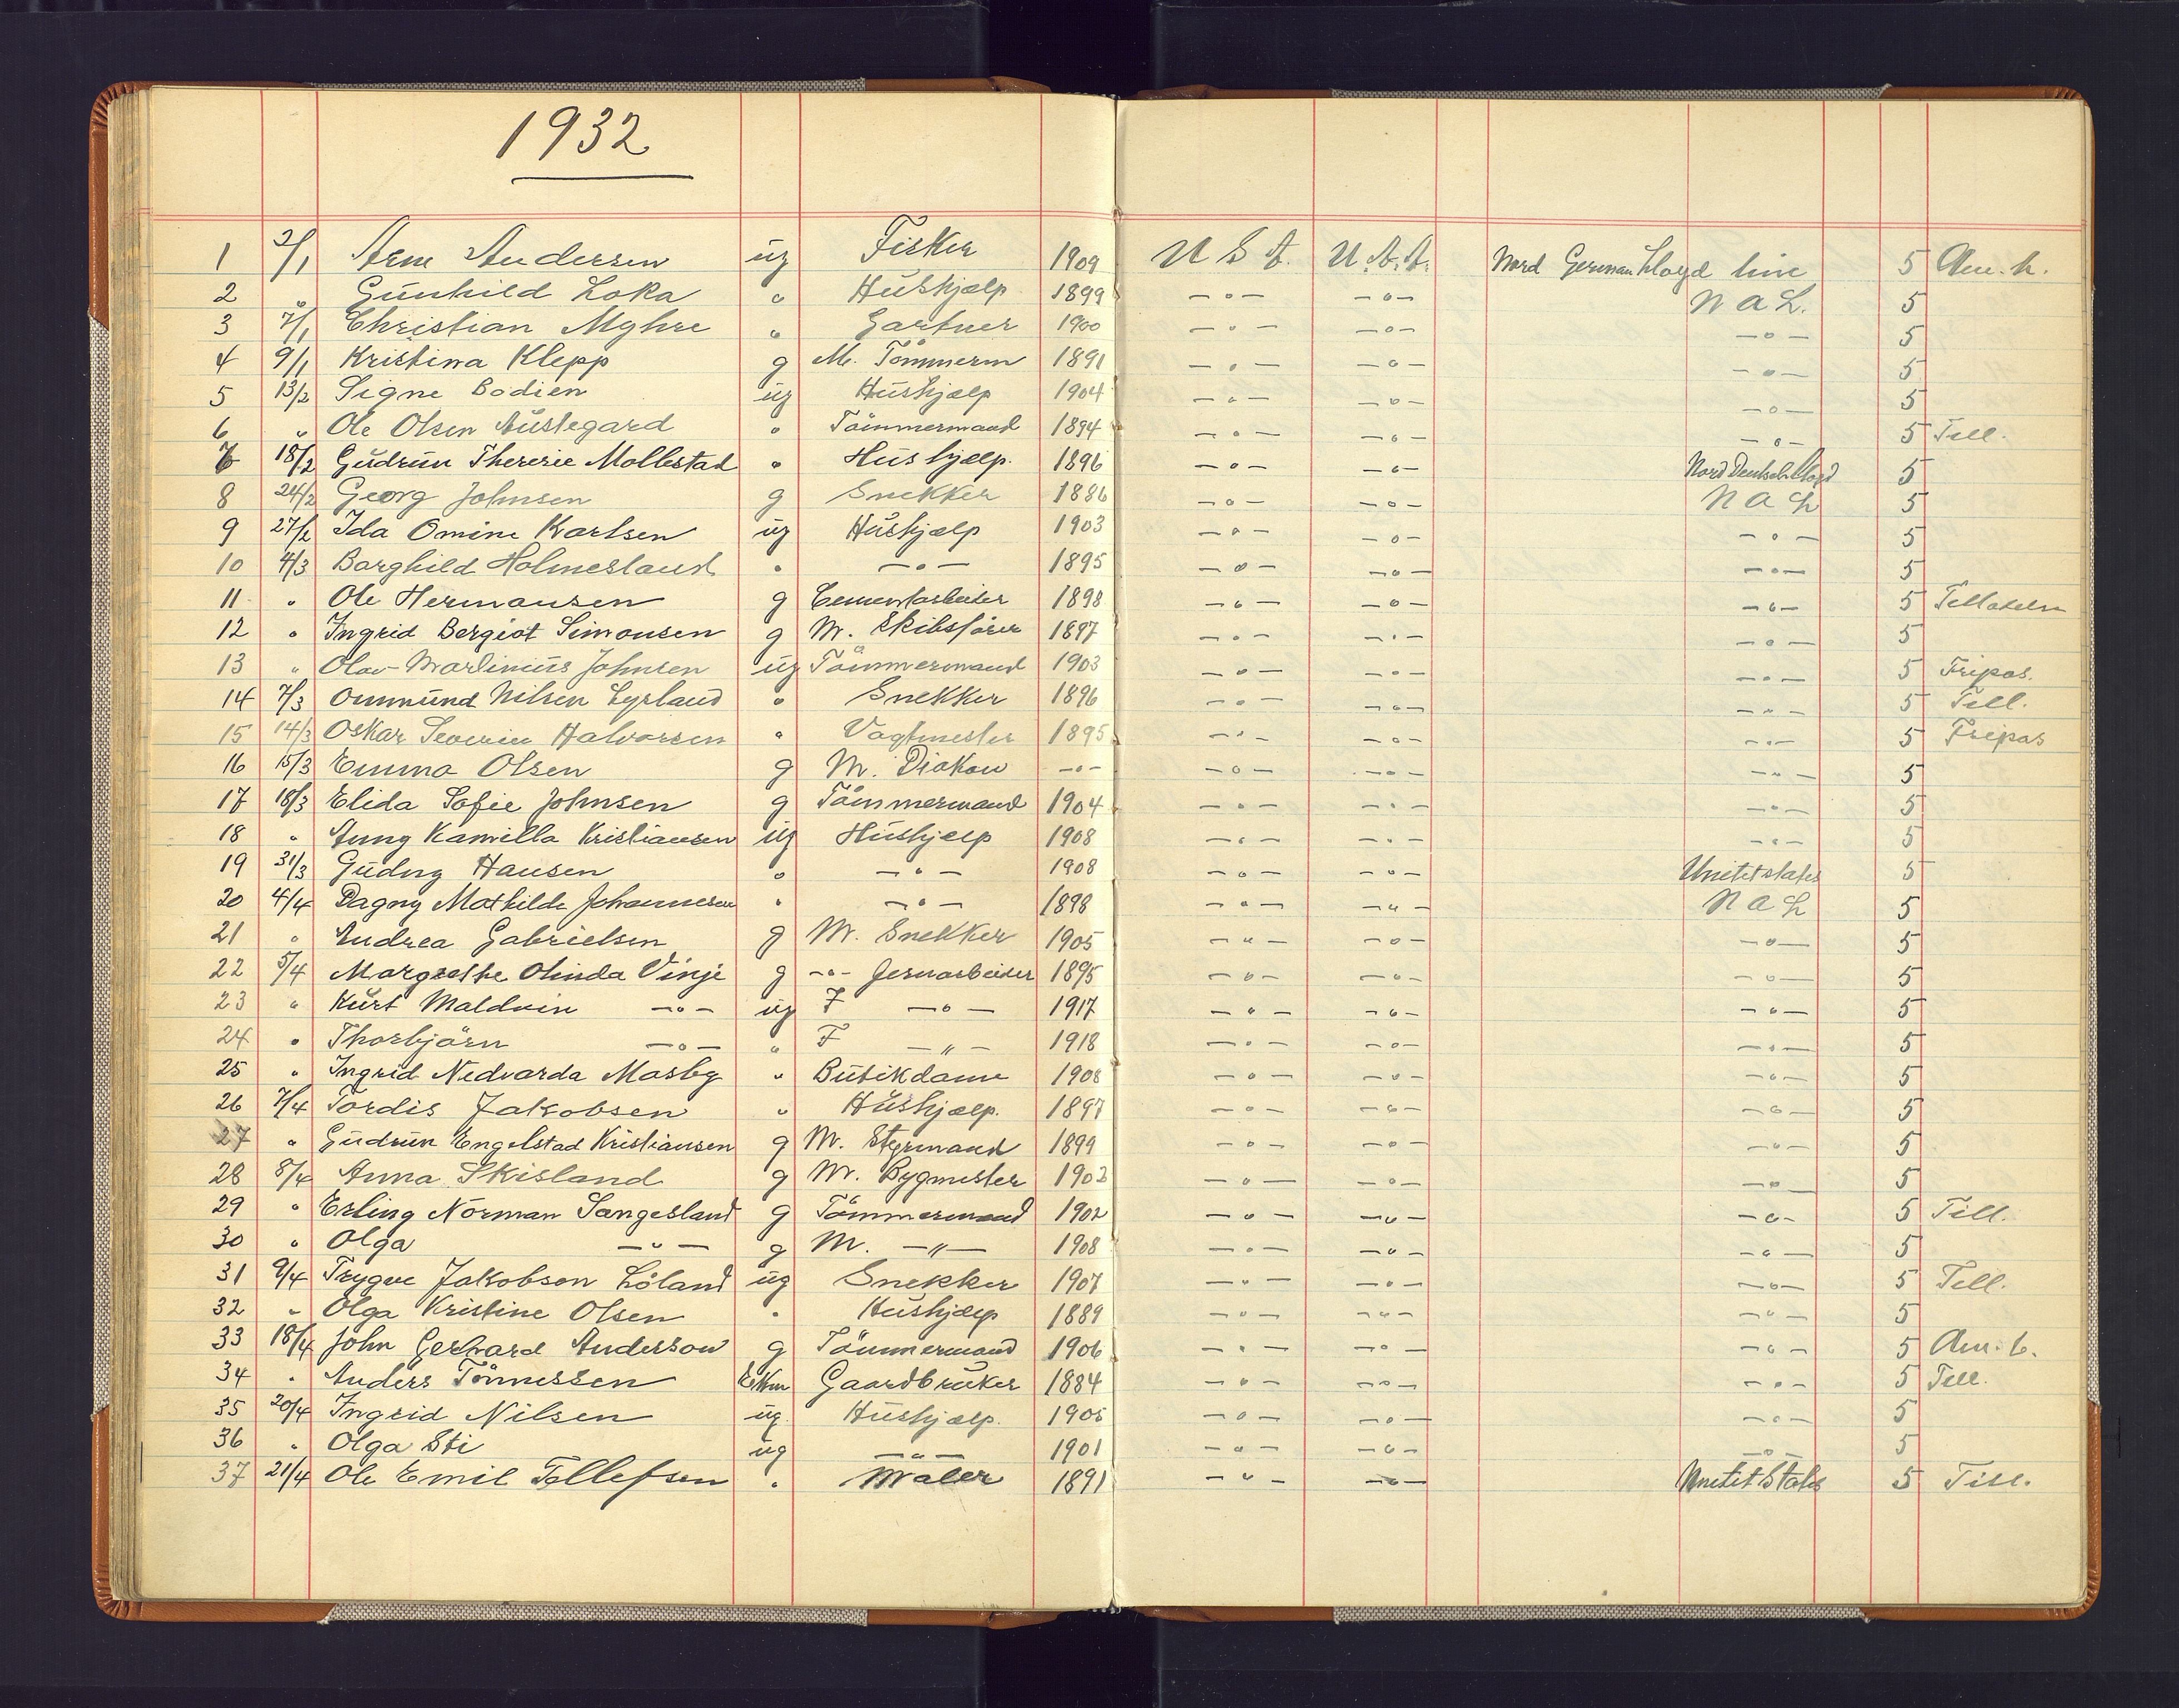 1932
1 2/1 Arne Andersen ug Fisker 1909 U S A. U.S.A. Nord German Lloyd line 5 Am. b.
2 " Gunhild Loka " Hushjælp 1899 -"- -"- N A L. 5
3 7/1 Christian Myhre " Gartner 1900 -"- -"- -"- 5
4 9/1 Kristina Klepp g M. Tömmerm 1891 -"- -"- -"- 5
5 13/2 Signe Bodien ug Hushjælp 1904 -"- -"- -"- 5
6 " Ole Olsen Austegard " Tömmermand 1894 -"- -"- -"- 5 Till.
7 18/2 Gudrun Therecie Mollestad " Hushjælp. 1896 -"- -"- Nord Deutsch Lloyd 5
8 24/2 Georg Johnsen g Snekker 1886 -"- -"- N A L 5
9 27/2 Ida Omine Karlsen ug Hushjælp 1903 -"- -"- -"- 5
10 4/3 Borghild Holmesland " -"- 1895 -"- -"- -"- 5
11 " Ole Hermansen g Cementarbeider 1898 -"- -"- -"- 5 Tillatelse
12 " Ingrid Bergiot Simonsen g M. Skibsfører 1897 -"- -"- -"- 5
13 " Olav Martinius Johnsen ug Tömmermand 1903 -"- -"- -"- 5 Fripas.
14 7/3 Ommund Nilsen Lyrland " Snekker 1896 -"- -"- -"- 5 Till.
15 14/3 Oskar Severin Halvorsen " Vagtmester 1895 -"- -"- -"- 5 Fripas
16 15/3 Emma Olsen g M. Diakon -"- -"- -"- -"- 5
17 18/3 Elida Sofie Johnsen g Tömmermand 1904 -"- -"- -"- 5
18 " Anny Kamilla Kristiansen ug Hushjælp 1908 -"- -"- -"- 5
19 31/3 Gudny Hansen " -"- 1908 -"- -"- Unitet states 5
20 4/4 Dagny Mathilde Johannesen " -"- 1898 -"- -"- N A L 5
21 " Andrea Gabrielsen g M. Snekker 1905 -"- -"- -"- 5
22 5/4 Margrethe Olinda Vinje g -"- Jernarbeider 1895 -"- -"- -"- 5
23 " Kurt Maldvin -"- ug F -"- 1917 -"- -"- -"- 5
24 " Thorbjørn -"- " F -"- 1918 -"- -"- -"- 5
25 " Ingrid Nedvarda Mosby " Butikdame 1908 -"- -"- -"- 5
26 7/4 Tordis Jakobsen " Hushjælp. 1897 -"- -"- -"- 5
27 " Gudrun Engelstad Kristiansen g M. Styrmand 1899 -"- -"- -"- 5
28 8/4 Anna Skisland g M. Bygmester 1902 -"- -"- -"- 5
29 " Erling Norman Sangesland g Tömmermand 1902 -"- -"- -"- 5 Till.
30 " Olga -"- g M. -"- 1908 -"- -"- -"- 5
31 9/4 Trygve Jakobson Löland ug Snekker 1907 -"- -"- -"- 5 Till.
32 " Olga Kristine Olsen " Hushjælp 1889 -"- -"- -"- 5
33 18/4 John Gerhard Anderson g Tömmermand 1906 -"- -"- -"- 5 Am. b.
34 " Anders Tönnessen Ekm Gaardbruker 1884 -"- -"- -"- 5 Till.
35 20/4 Ingrid Nilsen ug. Hushjælp. 1905 -"- -"- -"- 5
36 " Olga Sti ug -"- 1901 -"- -"- -"- 5
37 21/4 Ole Emil Tellefsen " Maler 1891 -"- -"- Unitet States 5 Till.